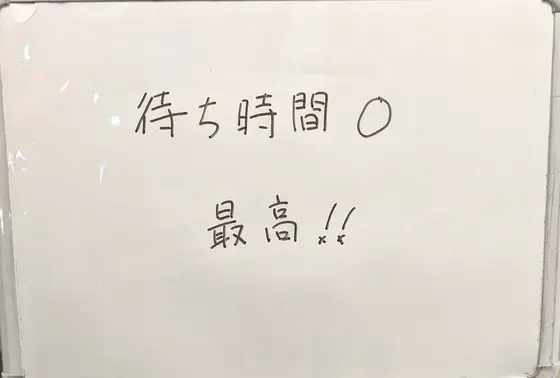 待ち時間 0
最高!!